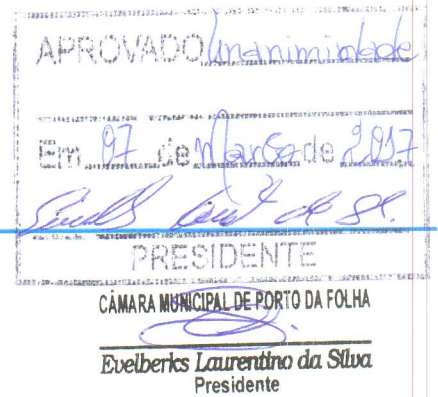 APROVADO Unanimidade
Em 07 de Março de 2017
PRESIDENTE
CÂMARA MUNICIPAL DE PORTO DA FOLHA
Evelberks Laurentino da Silva
Presidente